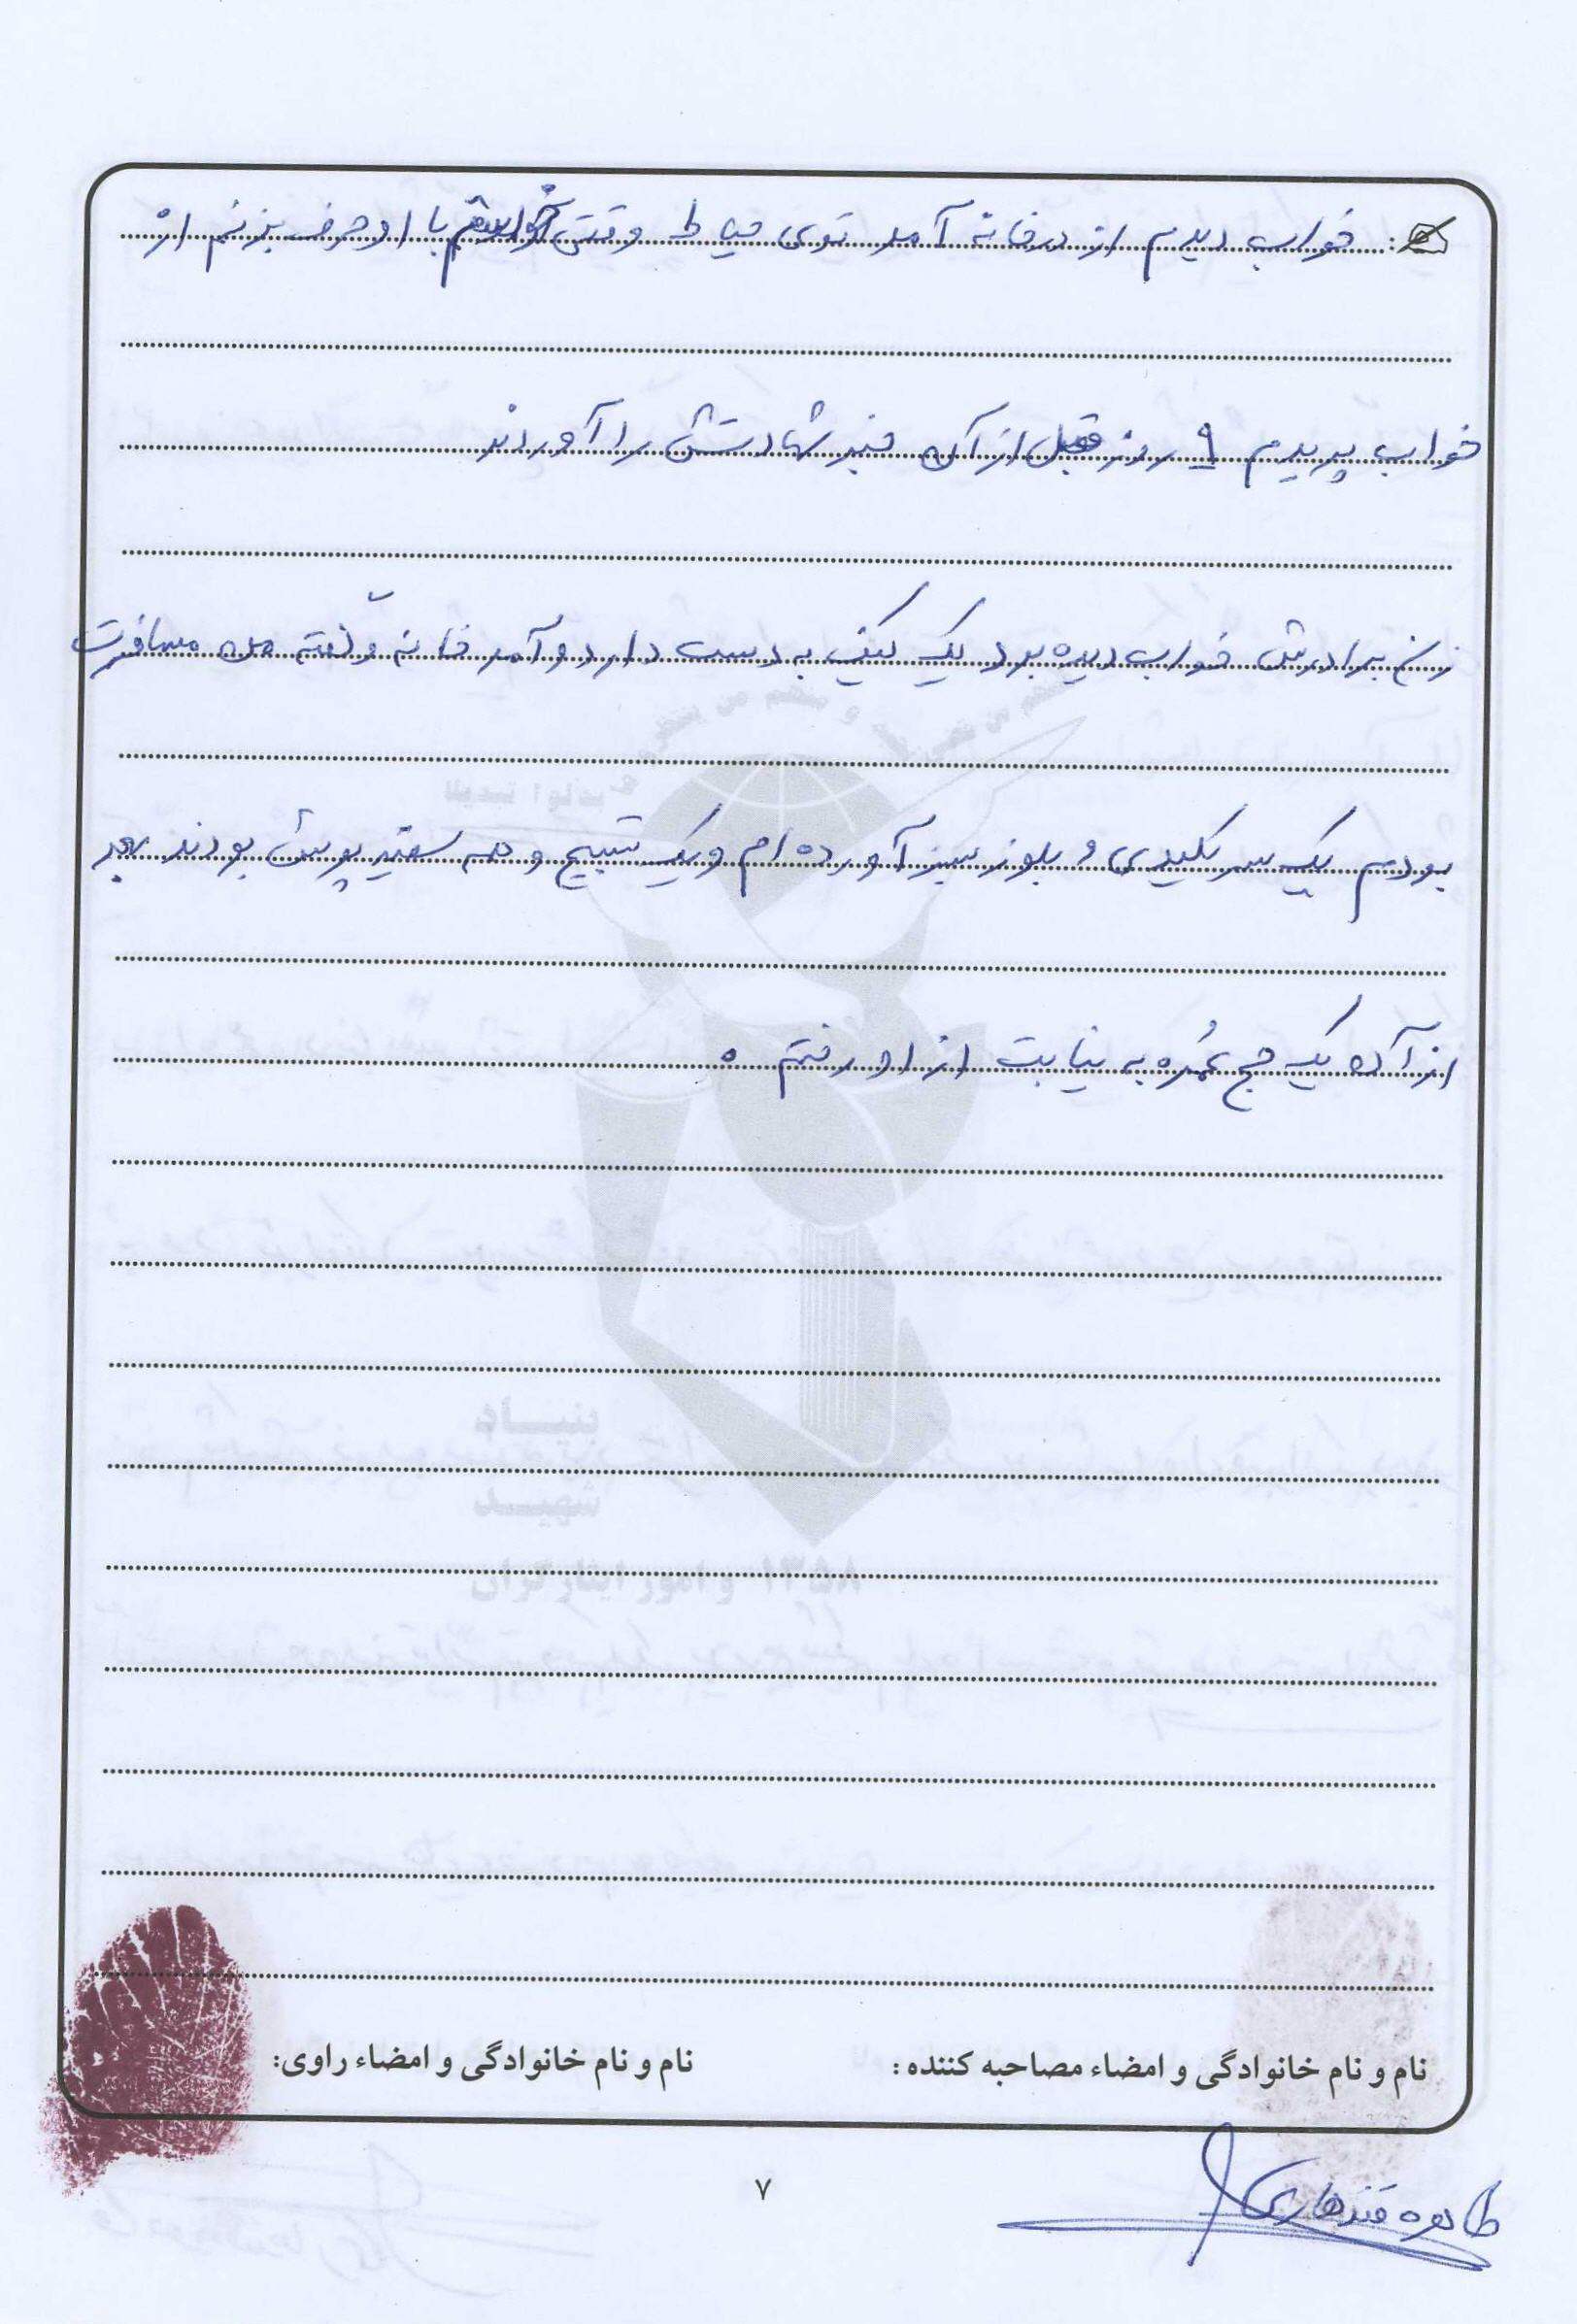 خواب دیدم از در خانه آمد توی حیاط وقتی خواستم با او حرف بزنم از
خواب پریدم ۹ روز قبل از آن خبر شهادتش را آوردند
زن برادرش خواب دیده بود یک کیف به دست دارد و آمد خانه و گفته من مسافرت
بودم یک سر کلیدی و بلوز سبز آورده ام و یک تسبیح و همه سفید پوش بودند بعد
از آن یک حج عُمره به نیابت از او رفتم .
نام و نام خانوادگی و امضاء مصاحبه کننده :
نام و نام خانوادگی و امضاء راوی:
۷
طاهره قندهاری
بنیاد
شهید
۱۳۵۸ و امور ایثارگران